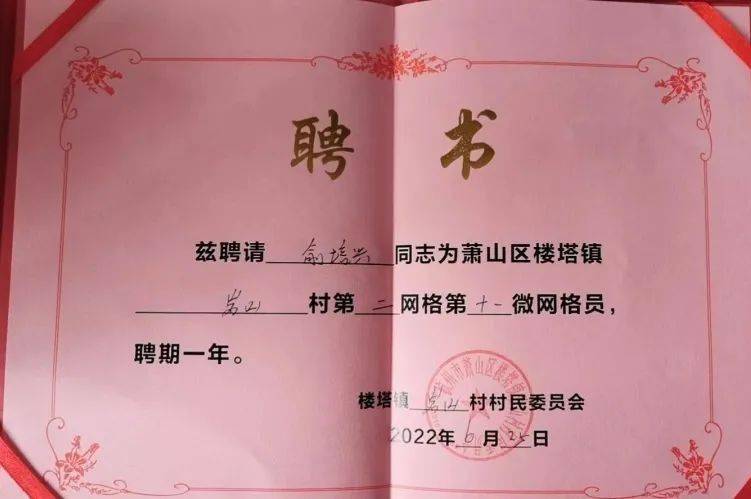 聘书
兹聘请俞培兴同志为萧山区楼塔镇
岩山村第二网格第十一微网格员，
聘期一年。
楼塔镇岩山村村民委员会
2022年6月25日